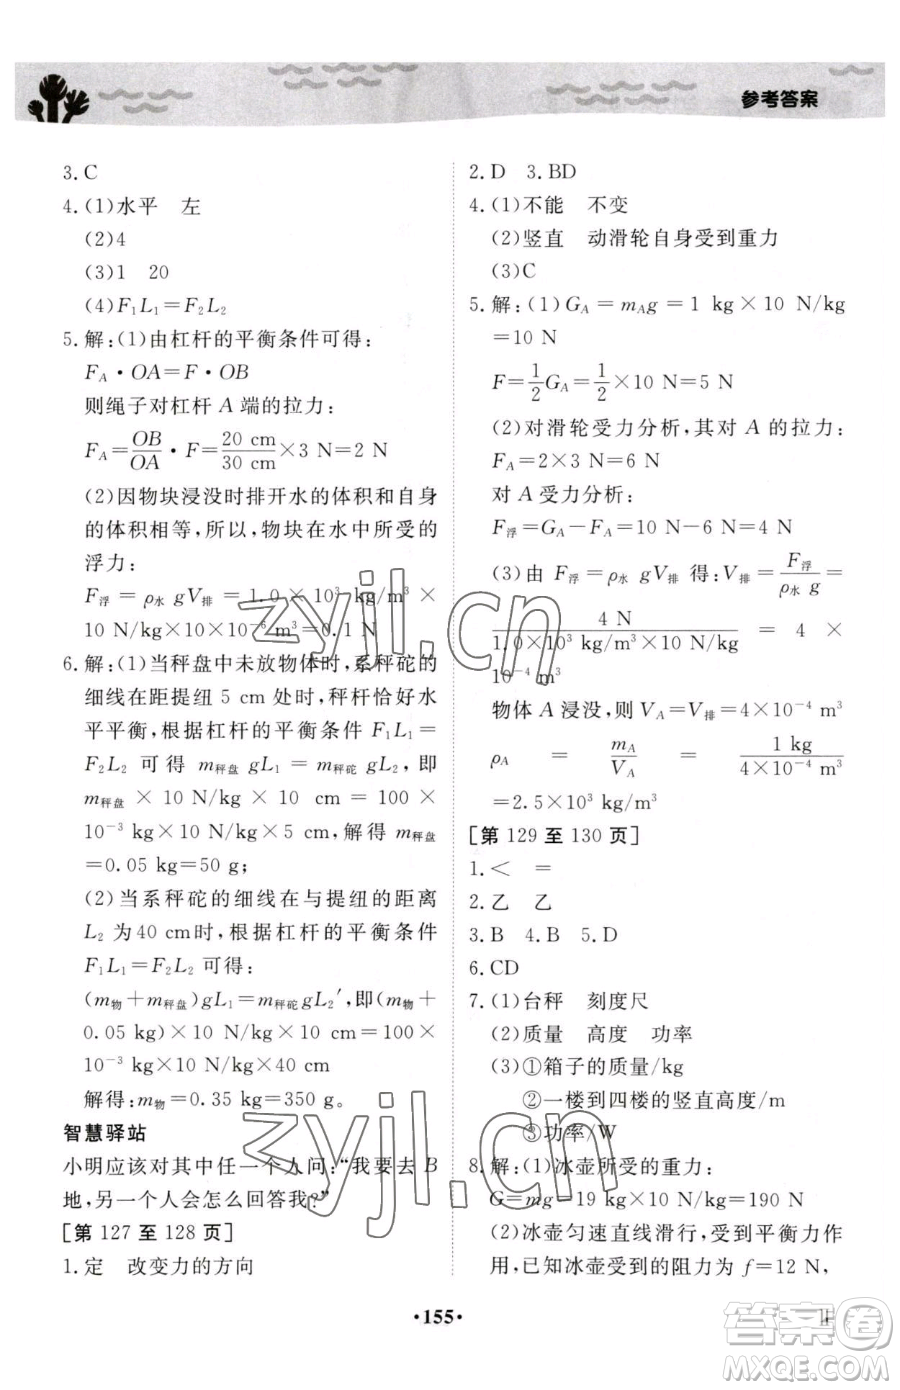 参考答案
3. C
4. (1)水平　左
(2)4
(3)1　20
(4)F₁L₁=F₂L₂
5. 解:(1)由杠杆的平衡条件可得:
F_A·OA=F·OB
则绳子对杠杆 A 端的拉力:
F_A=OB/OA·F=20 cm/30 cm×3 N=2 N
(2)因物块浸没时排开水的体积和自身
的体积相等,所以,物块在水中所受的
浮力:
F浮=ρ水gV排=1.0×10³ kg/m³×
10 N/kg×10×10⁻⁶ m³=0.1 N
6. 解:(1)当秤盘中未放物体时,系秤砣的
细线在距提纽 5 cm 处时,秤杆恰好水
平平衡,根据杠杆的平衡条件 F₁L₁=
F₂L₂ 可得 m秤盘gL₁=m秤砣gL₂,即
m秤盘×10 N/kg×10 cm=100×
10⁻³ kg×10 N/kg×5 cm,解得 m秤盘
=0.05 kg=50 g;
(2)当系秤砣的细线在与提纽的距离
L₂ 为40 cm时,根据杠杆的平衡条件
F₁L₁=F₂L₂ 可得:
(m物+m秤盘)gL₁=m秤砣gL₂′,即(m物+
0.05 kg)×10 N/kg×10 cm=100×
10⁻³ kg×10 N/kg×40 cm
解得:m物=0.35 kg=350 g。
智慧驿站
小明应该对其中任一个人问:“我要去 B
地,另一个人会怎么回答我?”
[第 127 至 128 页]
1. 定　改变力的方向
2. D　3. BD
4. (1)不能　不变
(2)竖直　动滑轮自身受到重力
(3)C
5. 解:(1)G_A=m_Ag=1 kg×10 N/kg
=10 N
F=1/2G_A=1/2×10 N=5 N
(2)对滑轮受力分析,其对 A 的拉力:
F_A=2×3 N=6 N
对 A 受力分析:
F浮=G_A−F_A=10 N−6 N=4 N
(3)由 F浮=ρ水gV排 得:V排=F浮/ρ水g=
4 N/1.0×10³ kg/m³×10 N/kg=4×
10⁻⁴ m³
物体 A 浸没,则 V_A=V排=4×10⁻⁴ m³
ρ_A=m_A/V_A=1 kg/4×10⁻⁴ m³
=2.5×10³ kg/m³
[第 129 至 130 页]
1. <　=
2. 乙　乙
3. B　4. B　5. D
6. CD
7. (1)台秤　刻度尺
(2)质量　高度　功率
(3)①箱子的质量/kg
②一楼到四楼的竖直高度/m
③功率/W
8. 解:(1)冰壶所受的重力:
G=mg=19 kg×10 N/kg=190 N
(2)冰壶匀速直线滑行,受到平衡力作
用,已知冰壶受到的阻力为 f=12 N,
·155·
zyjl.cn
zyjl.cn
答案圈
MXQE.COM